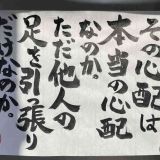 その心配は
本当の心配
なのか。
ただ他人の
足を引っ張り
だけなのか。